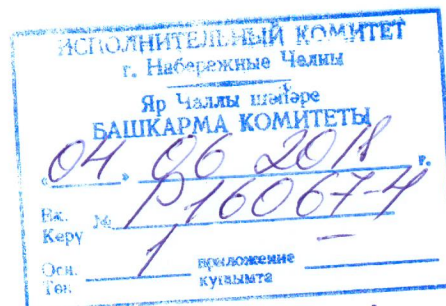 ИСПОЛНИТЕЛЬНЫЙ КОМИТЕТ
г. Набережные Челны
Яр Чаллы шәһәре
БАШКАРМА КОМИТЕТЫ
«04» 06 2018 г.
Вх. № 16067-4
Керү
Осн. 1 приложение —
Төп. кушымта